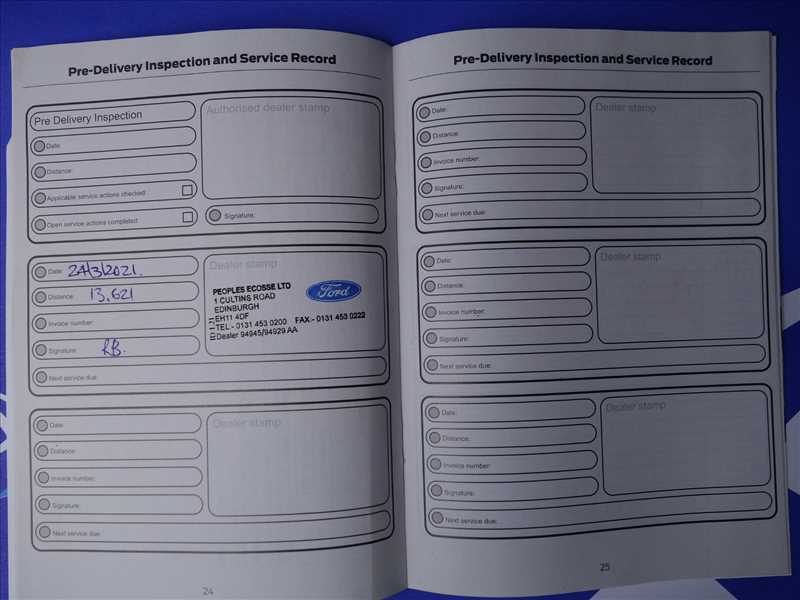 Pre-Delivery Inspection and Service Record
Pre Delivery Inspection
Authorised dealer stamp
Date:
Distance:
Applicable service actions checked:
Open service actions completed:
Signature:
Date: 24/3/2021.
Distance: 13,621
Invoice number:
Signature: RB.
Next service due:
Dealer stamp
PEOPLES ECOSSE LTD
1 CULTINS ROAD
EDINBURGH
EH11 4DF
TEL:- 0131 453 0200 FAX:- 0131 453 0222
Dealer 94945/94929 AA
Ford
Date:
Distance:
Invoice number:
Signature:
Next service due:
Dealer stamp
24
Pre-Delivery Inspection and Service Record
Date:
Distance:
Invoice number:
Signature:
Next service due:
Dealer stamp
Date:
Distance:
Invoice number:
Signature:
Next service due:
Dealer stamp
Date:
Distance:
Invoice number:
Signature:
Next service due:
Dealer stamp
25